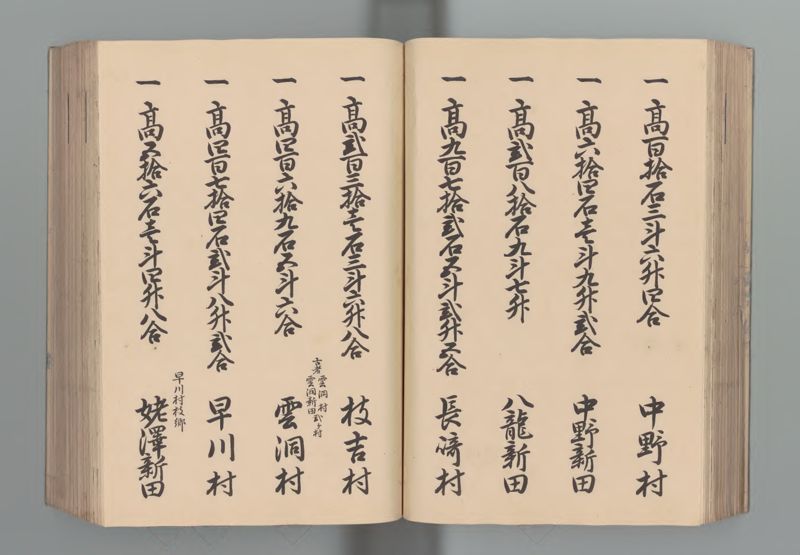 一 高百拾石三斗六升四合 中野村
一 高六拾四石壱斗九升弐合 中野新田
一 高弐百八拾石九斗七升 八龍新田
一 高九百七拾弐石五斗弐升五合 長崎村
一 高弐百三拾壱石三斗六升八合 枝吉村
古者雲洞村
雲洞新田弐ヶ村
一 高四百六拾九石五斗六合 雲洞村
一 高四百七拾四石弐斗八升弐合 早川村
早川村枝郷
一 高五拾六石壱斗四升八合 姥澤新田